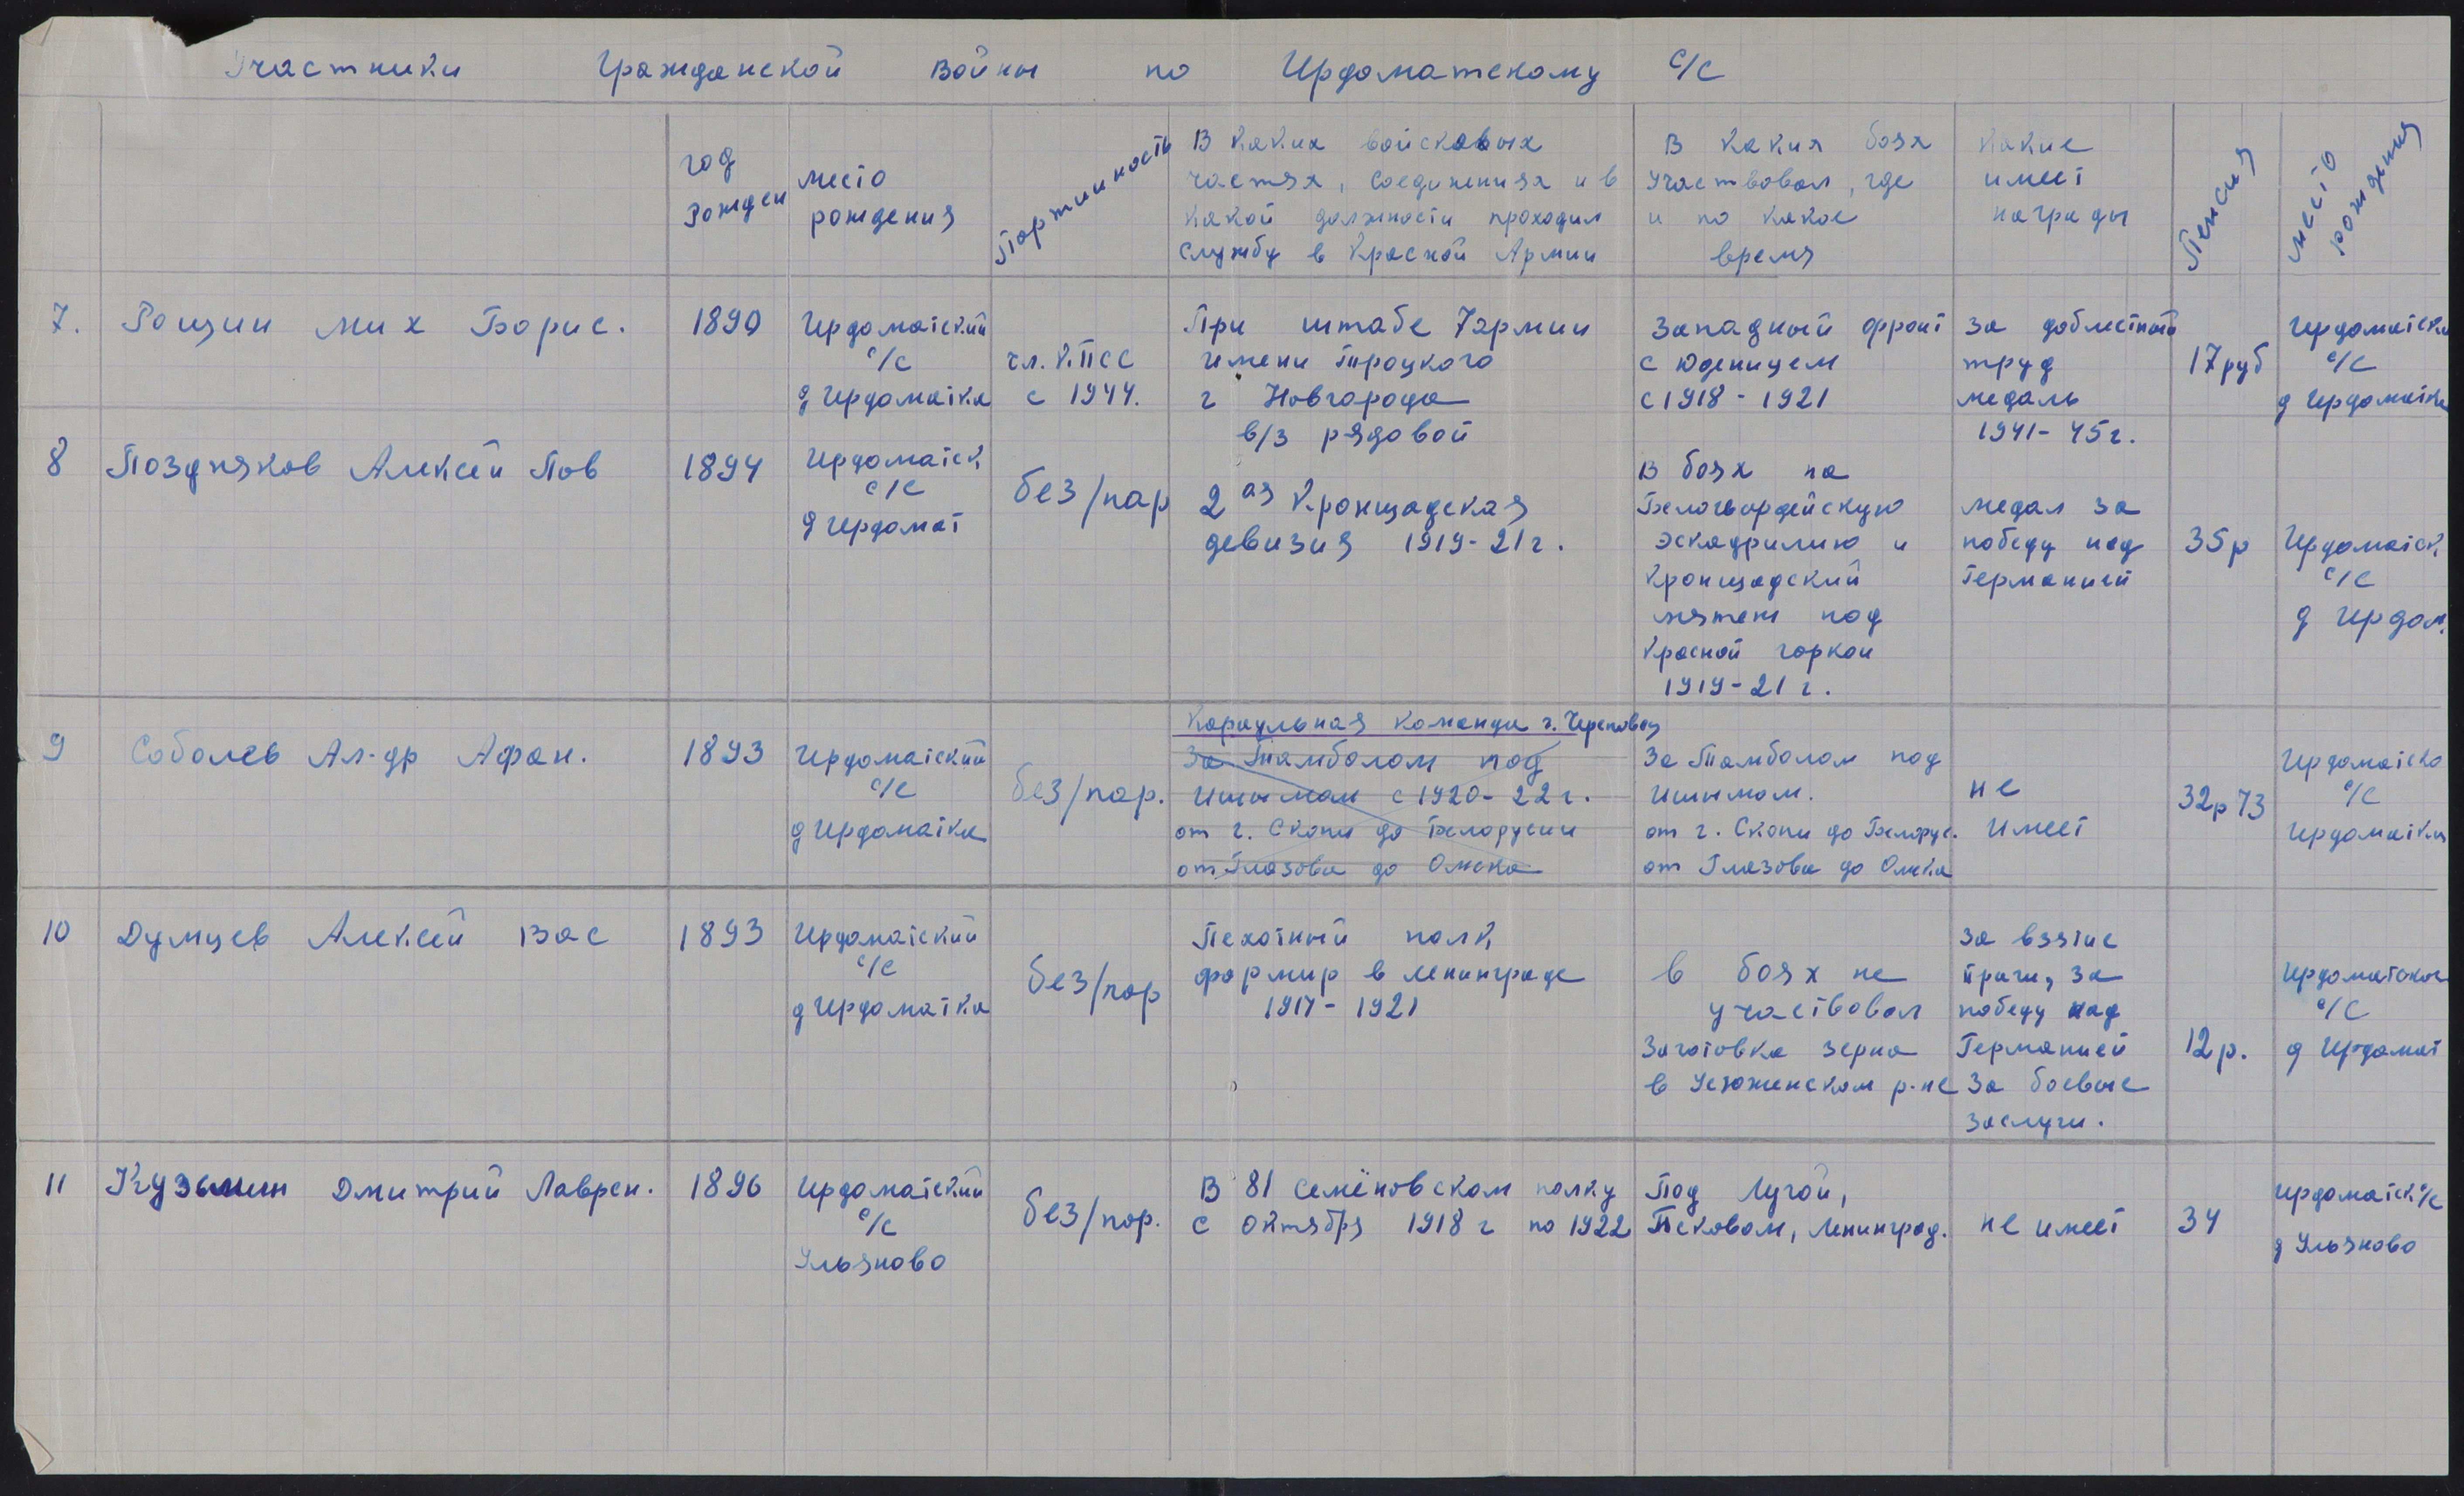 Участники Гражданской Войны по Ирдоматскому с/с
год рожден
место рождения
Партийность
В каких войсковых
частях, соединениях и в
какой должности проходил
службу в Красной Армии
В каких боях
участвовал, где
и по какое
время
какие
имеет
награды
Пенсия
место рождения
7. Рощин Мих Борис.
1890
Ирдоматский
с/с
д Ирдоматка
чл. КПСС
с 1944.
При штабе 7 армии
имени Троцкого
г Новгорода
в/з рядовой
Западный фронт
с Юденицем
с 1918 - 1921
за доблестный
труд
медаль
1941 - 45 г.
17 руб
Ирдоматский
с/с
д Ирдоматка
8 Поздняков Алексей Пав
1894
Ирдоматск
с/с
д Ирдомат
без/пар
2 ая Кронщадская
девизия 1919 - 21 г.
В боях на
Белогвардейскую
эскадрилию и
Кронщадский
мятеж под
Красной горкой
1919 - 21 г.
медал за
победу над
Германией
35 р
Ирдоматск
с/с
д Ирдом.
9 Соболев Ал-др Афан.
1893
Ирдоматский
с/с
д Ирдоматка
без/пар.
Караульная команда г. Череповец
За Тамболом под
Ишимом с 1920 - 22 г.
от г. Скопи до Белорусии
от Глазова до Омска
За Тамболом под
Ишимом.
от г. Скопи до Белорус.
от Глазова до Омска
не
имеет
32 р 73
Ирдоматско
с/с
Ирдоматка
10 Думцев Алексей Вас
1893
Ирдоматский
с/с
д Ирдоматка
без/пар
Пехотный полк
формир в Ленинграде
1917 - 1921
в боях не
участвовал
Заготовка зерна
в Устюженском р-не
За взятие
Праги, за
победу над
Германией
За боевые
заслуги.
12 р.
Ирдоматское
с/с
д Ирдомат
11 Кузьмин Дмитрий Лаврен.
1896
Ирдоматский
с/с
Ульяново
без/пар.
В 81 семёновском полку
с октября 1918 г по 1922
Под Лугой,
Псковом, Ленинград.
не имеет
34
Ирдоматск с/с
д Ульяново